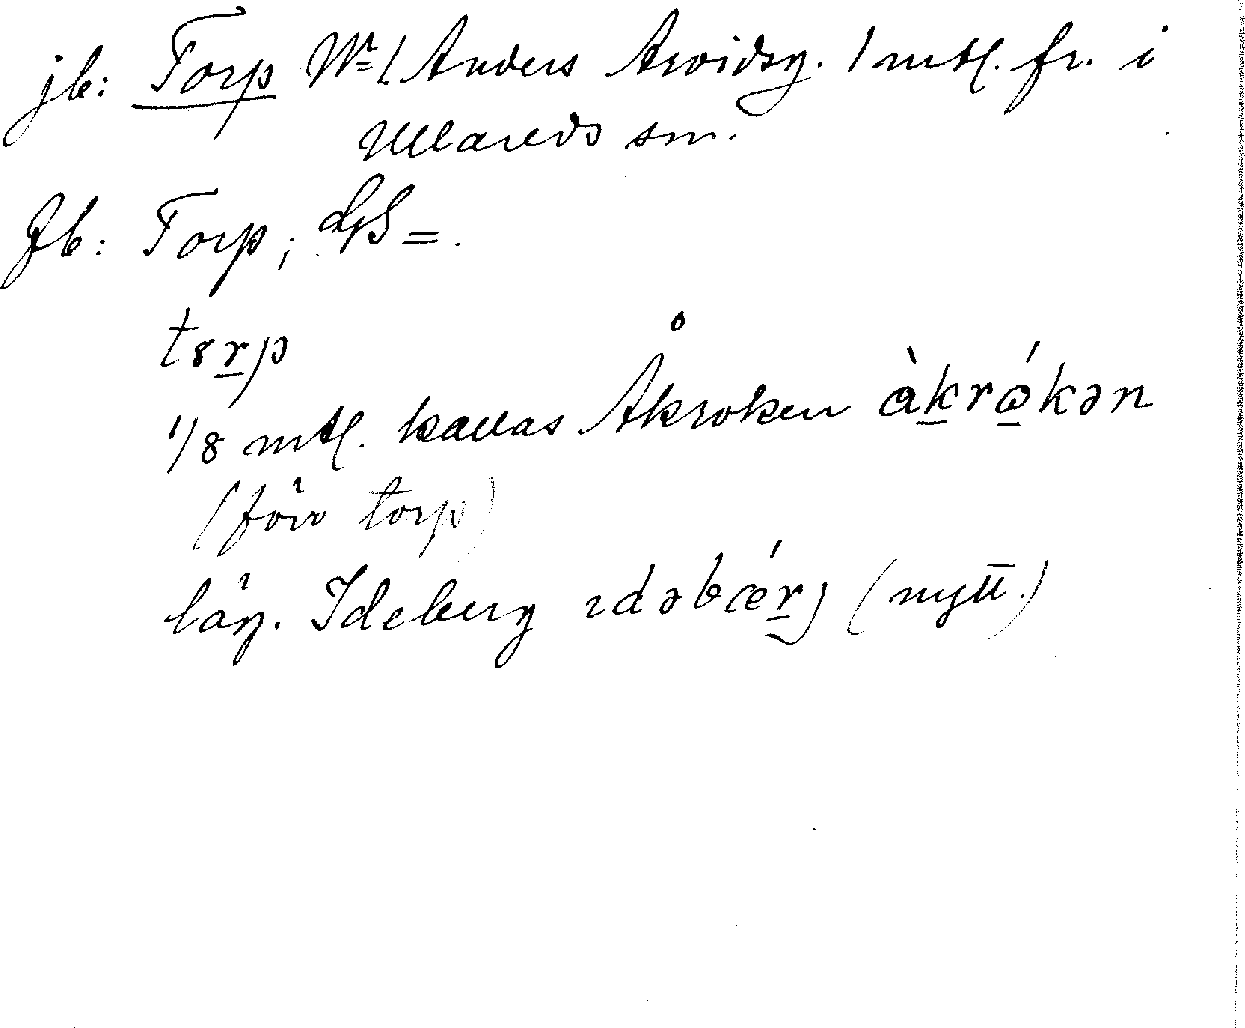 jb: Torp No 1 Anders Arvidsg. 1 mtl. fr. i
Ullareds sn.
Jb: Torp; GS =.
tɷrp
1/8 mtl. kallas Åkroken àkrǿkən
(förr torp)
läg. Ideberg ıdəbǽrj (nytt.)